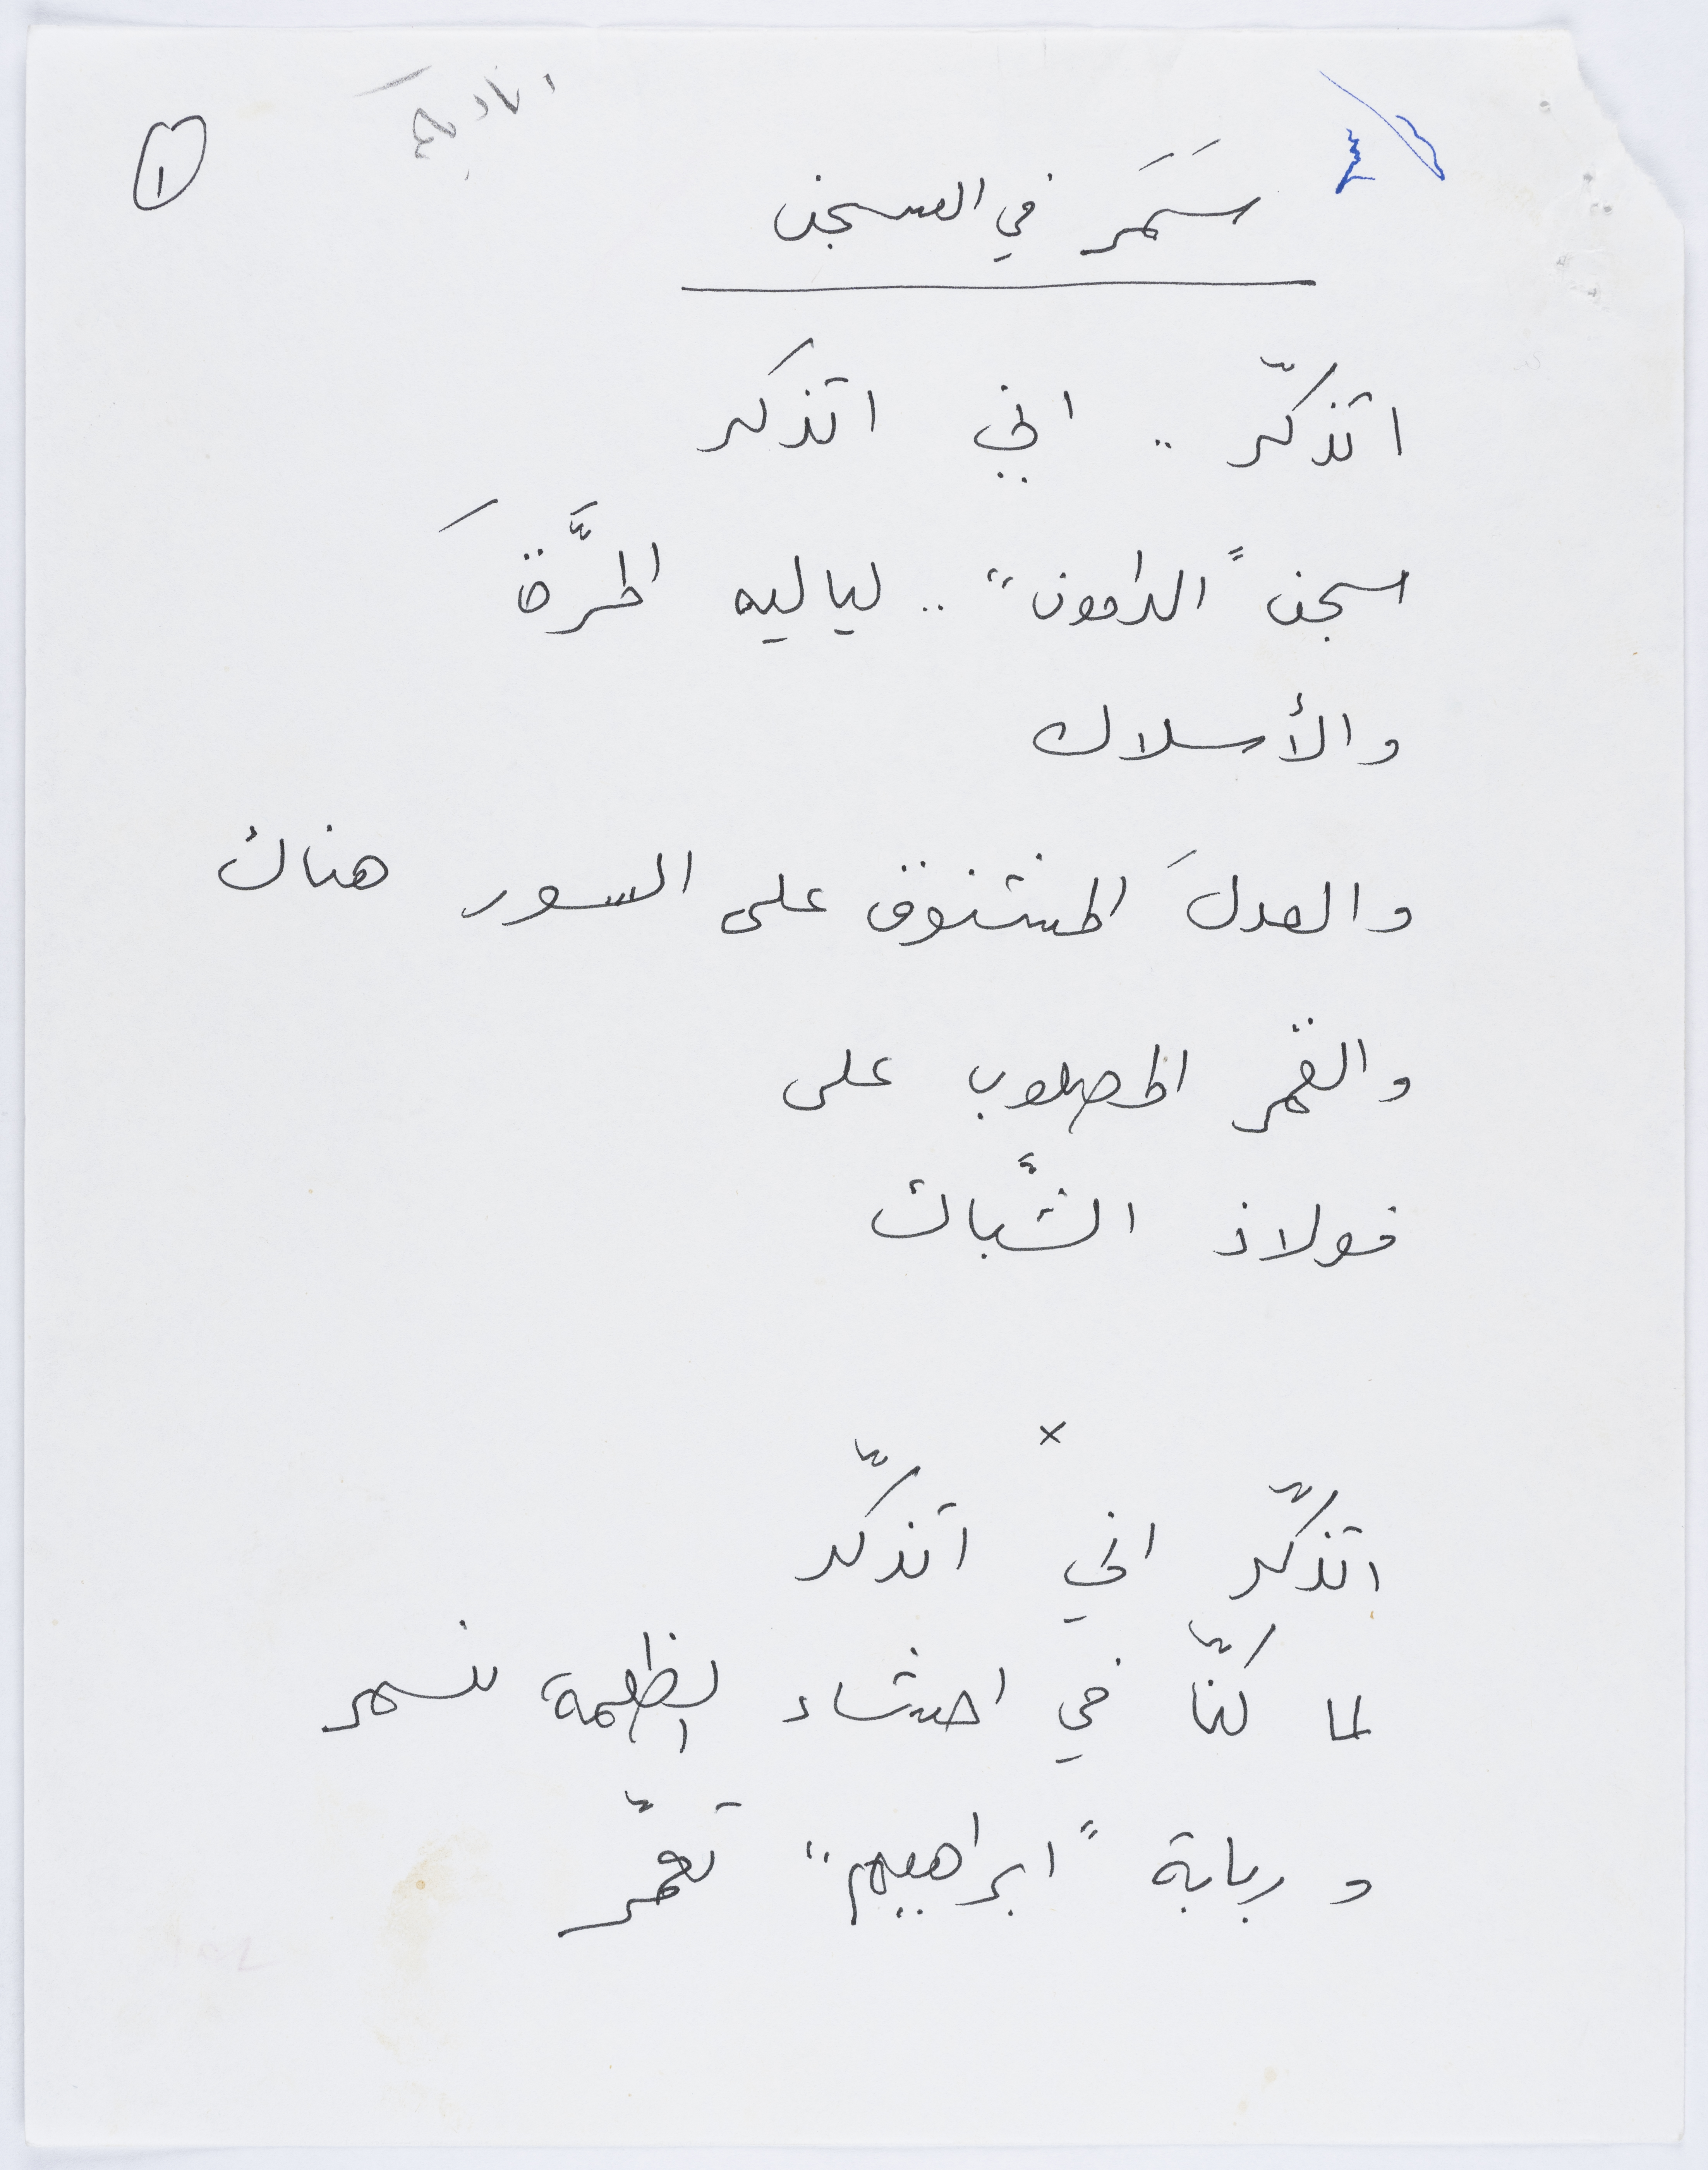 اناديكم
١
سَمَر في السجن
اتذكّر .. اني اتذكر
سجن "الدامون" .. لياليه المرَّةَ
والأسلاك
والعدلَ المشنوق على السور هناك
والقمر المصلوب على
فولاذ الشَّباك
×
اتذكّر اني اتذكّر
لما كنّا في احشاء الظلمة نسمر
و ربابة "ابراهيم" تعمّر